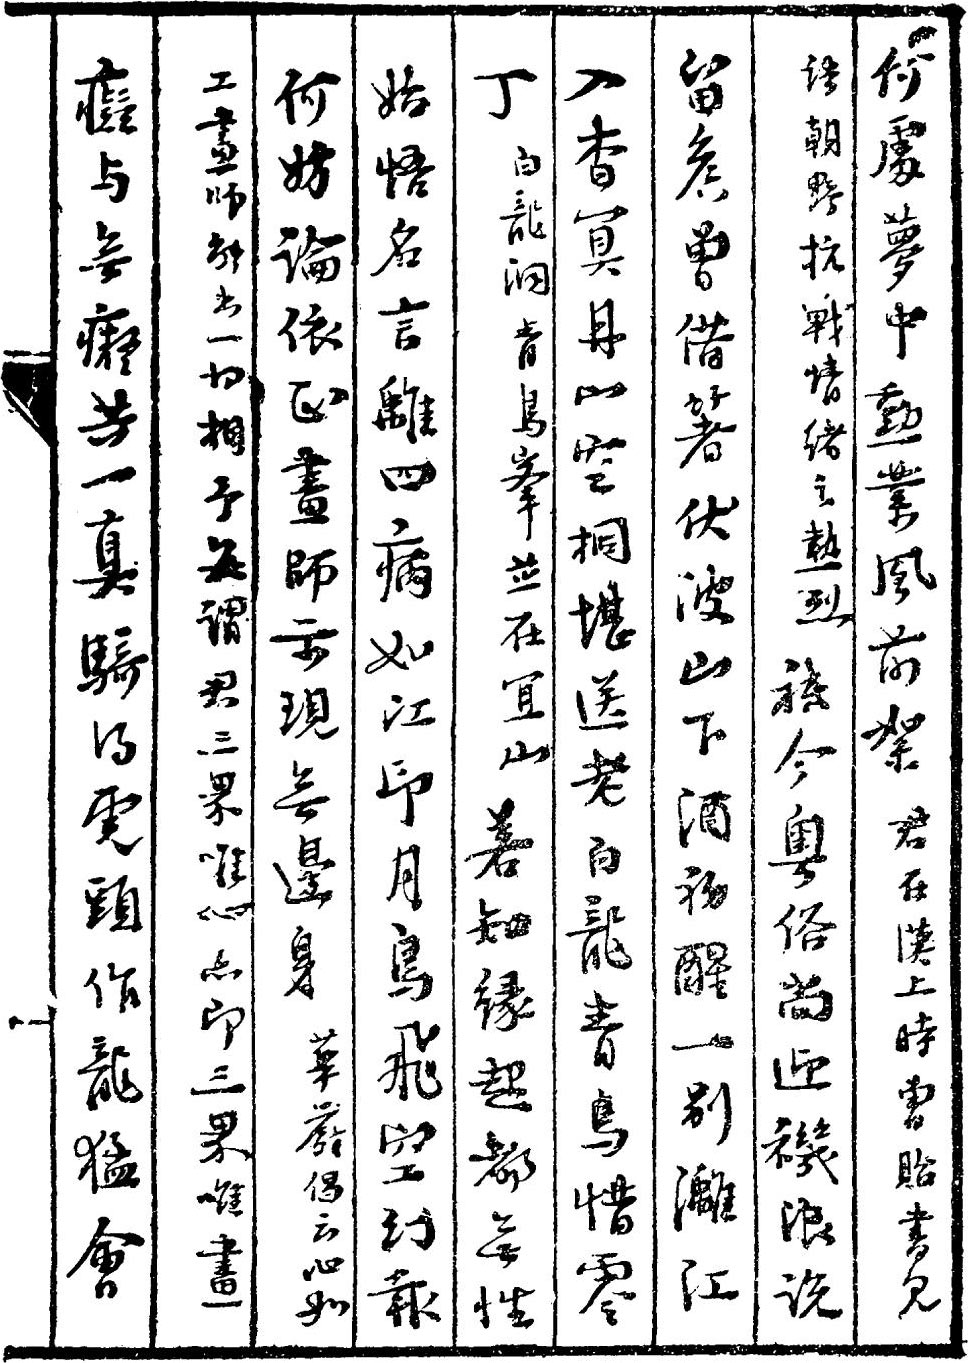 何處夢中勳業風前絮君在漢上時曾貽書見
語朝野抗戰情緒之熱烈祗今粵俗尚迎禨浪說
留矦曾借箸伏波山下酒初醒一別灕江
入杳冥丹山空桐堪送老白龍青鳥惜零
丁白龍洞青鳥峯並在宜山善知緣起都無性
始悟名言離四病如江印月鳥飛空幻報
何妨論依正畫師示現無邊身華嚴偈云心如
工畫師能出一切相予每謂君三界唯心亦即三界唯畫
癡与無癡共一真騎得虎頭作龍猛會